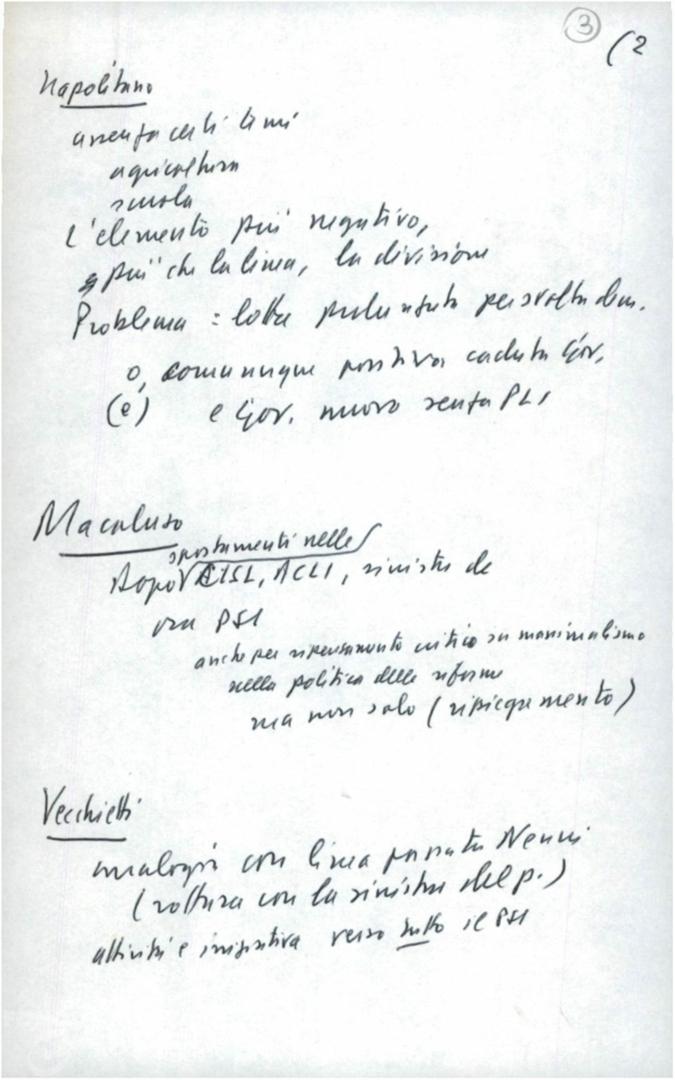 3
(2
Napolitano
assenza certi temi
agricoltura
scuola
L'elemento più negativo,
più che la linea, la divisione
Problema: lotta prolungata per svolta dem.
o, comunque positiva caduta Gov.
(e) e Gov. nuovo senza PLI
Macaluso
spostamenti nelle
dopo CISL, ACLI, sinistra dc
ora PSI
anche per ripensamento critico su massimalismo
nella politica delle riforme
ma non solo (ripiegamento)
Vecchietti
analogia con linea passata Nenni
(rottura con la sinistra del p.)
attività e iniziativa verso tutto il PSI